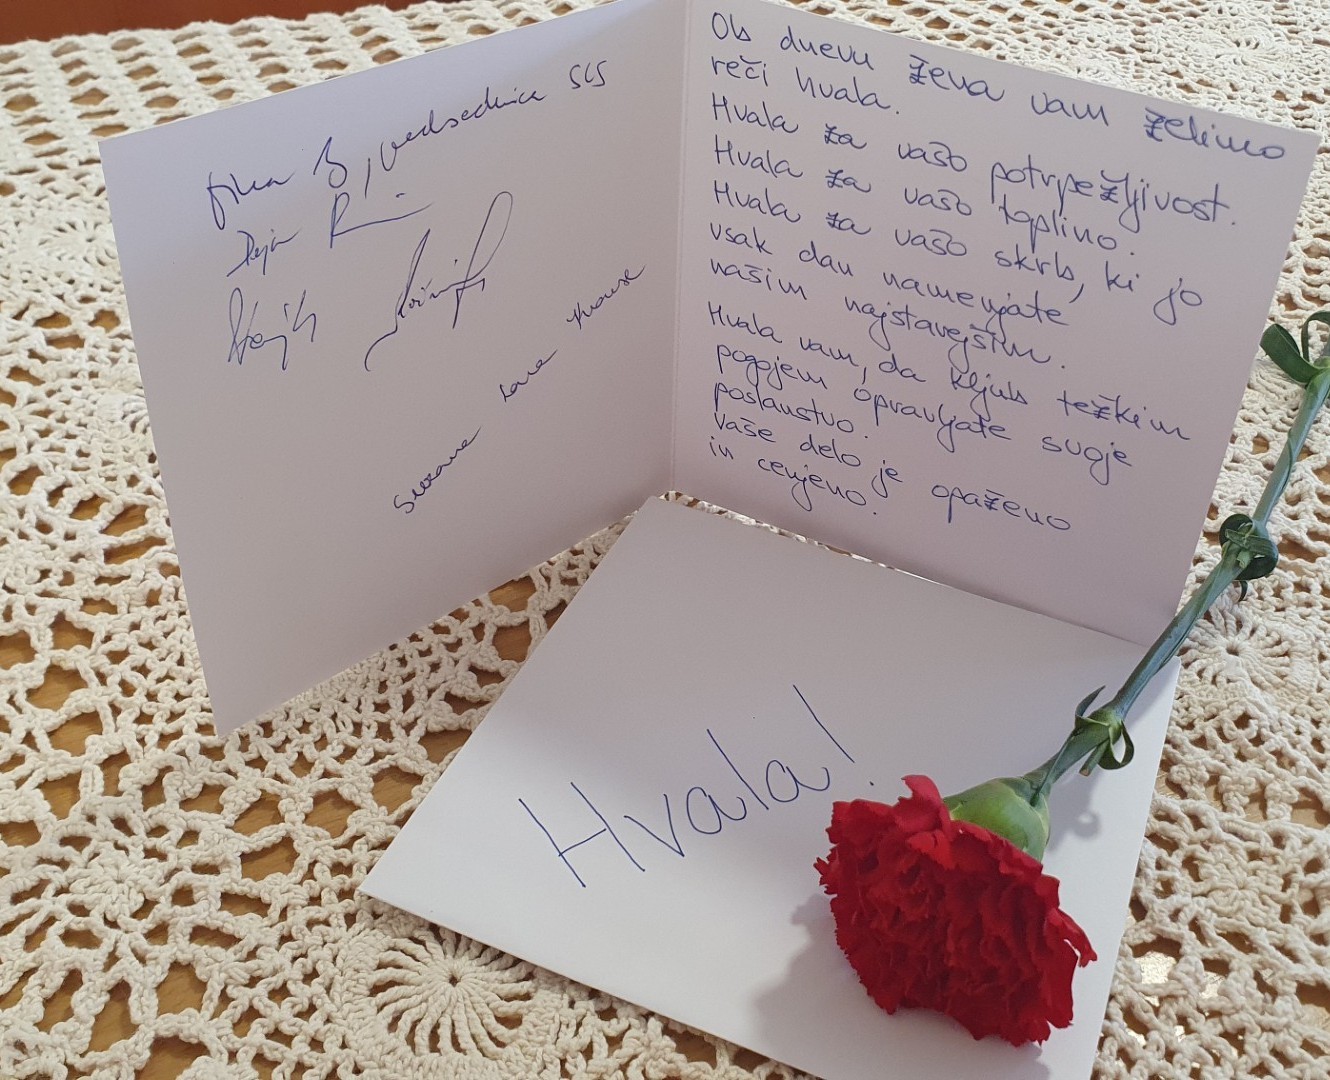 predsednica SLS
Suzana Lara Krause
Ob dnevu žena vam želimo
reči hvala.
Hvala za vašo potrpežljivost.
Hvala za vašo toplino.
Hvala za vašo skrb, ki jo
vsak dan namenjate
našim najstarejšim.
Hvala vam, da kljub težkim
pogojem opravljate svoje
poslanstvo.
Vaše delo je opaženo
in cenjeno.
Hvala!